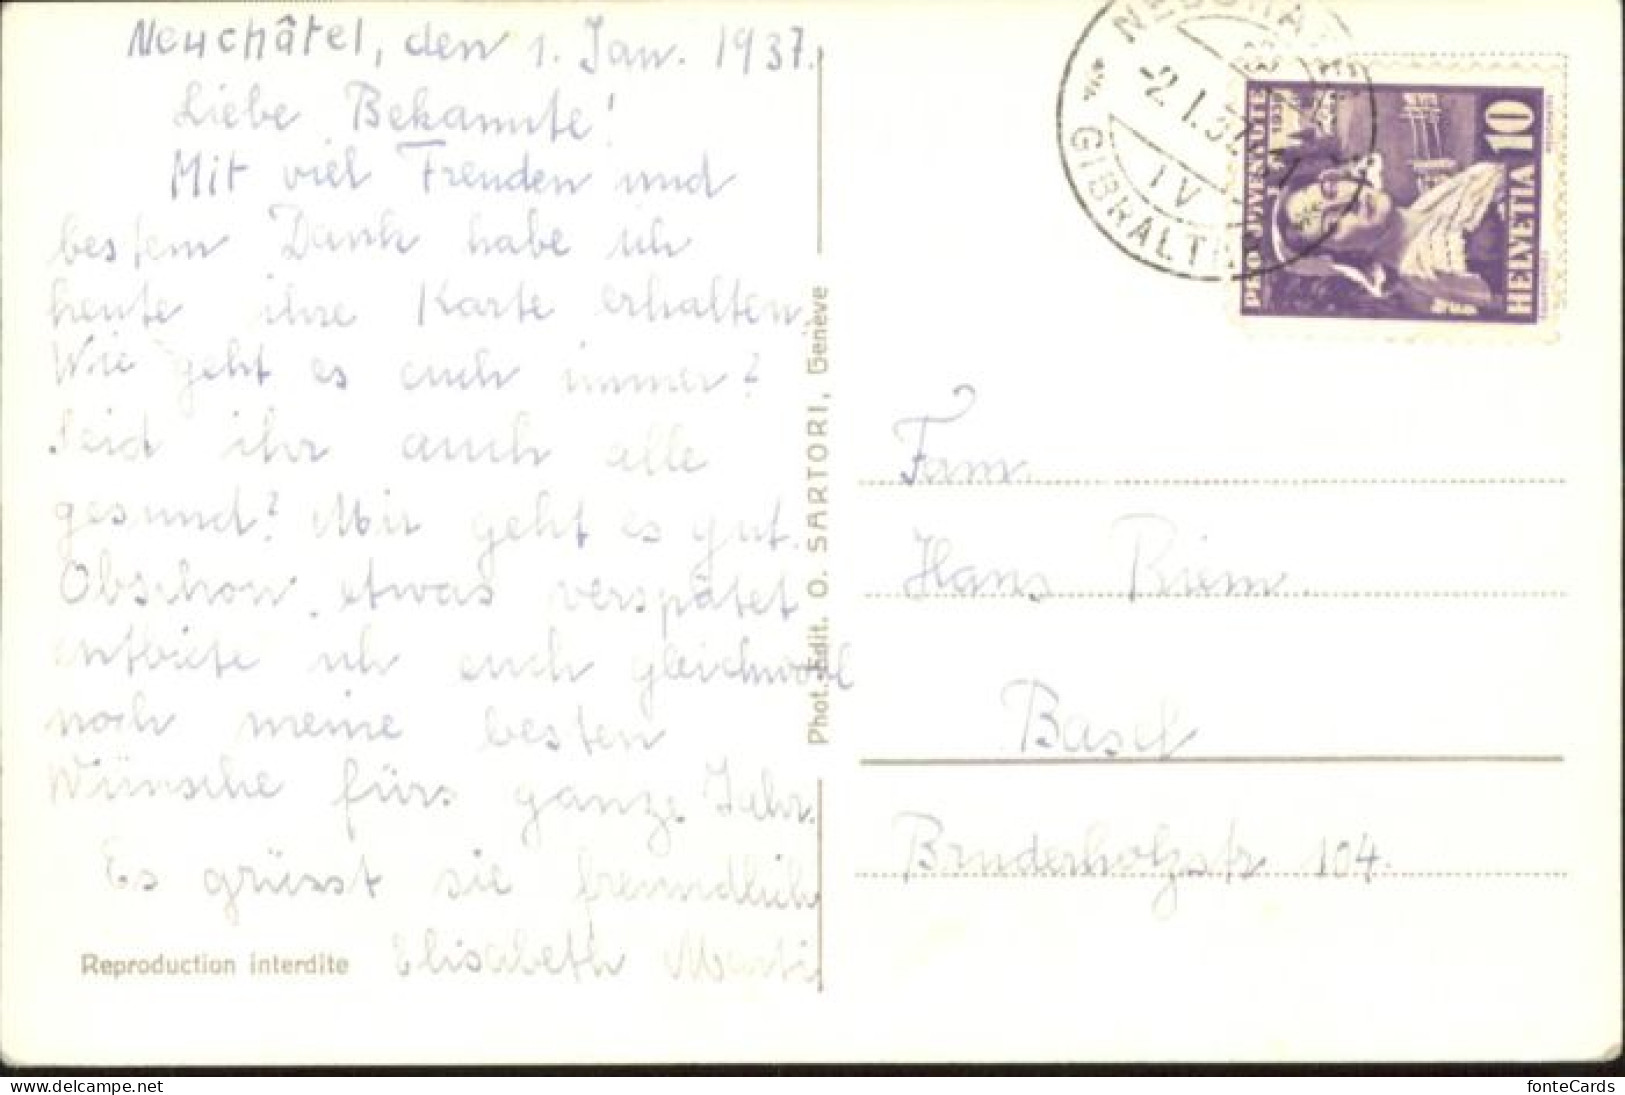 Neuchâtel, den 1. Jan. 1937.
Liebe Bekannte!
Mit viel Freuden und
bestem Dank habe ich
heute ihre Karte erhalten.
Wie geht es euch immer?
Seid ihr auch alle
gesund? Mir geht es gut.
Obschon etwas verspätet
entbiete ich euch gleichwohl
noch meine besten
Wünsche fürs ganze Jahr.
Es grüsst sie freundlich
Elisabeth Marti
Reproduction interdite
Phot. Edit. O. SARTORI, Genève
-2.I.37
IV
GIBRALT
PRO JUVENTUTE 1936
HELVETIA 10
Fam.
Hans Riem.
Basel
Bruderholzstr 104.
fonteCards